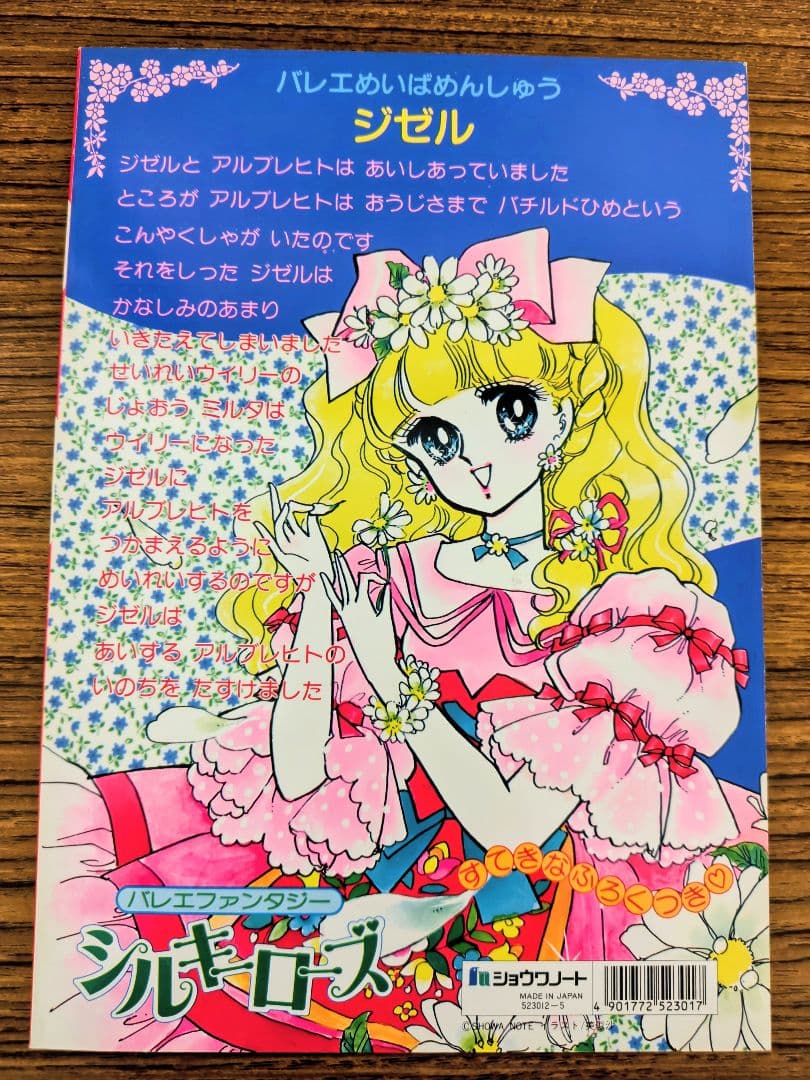 バレエめいばめんしゅう
ジゼル
ジゼルと アルブレヒトは あいしあっていました
ところが アルブレヒトは おうじさまで バチルドひめという
こんやくしゃが いたのです
それをしった ジゼルは
かなしみのあまり
いきたえてしまいました
せいれいウイリーの
じょおう ミルタは
ウイリーになった
ジゼルに
アルブレヒトを
つかまえるように
めいれいするのですが
ジゼルは
あいする アルブレヒトの
いのちを たすけました
すてきなふろくつき♡
バレエファンタジー
シルキーローズ
ショウワノート
MADE IN JAPAN
523012-5
4 901772 523017
©SHOWA NOTE イラスト/